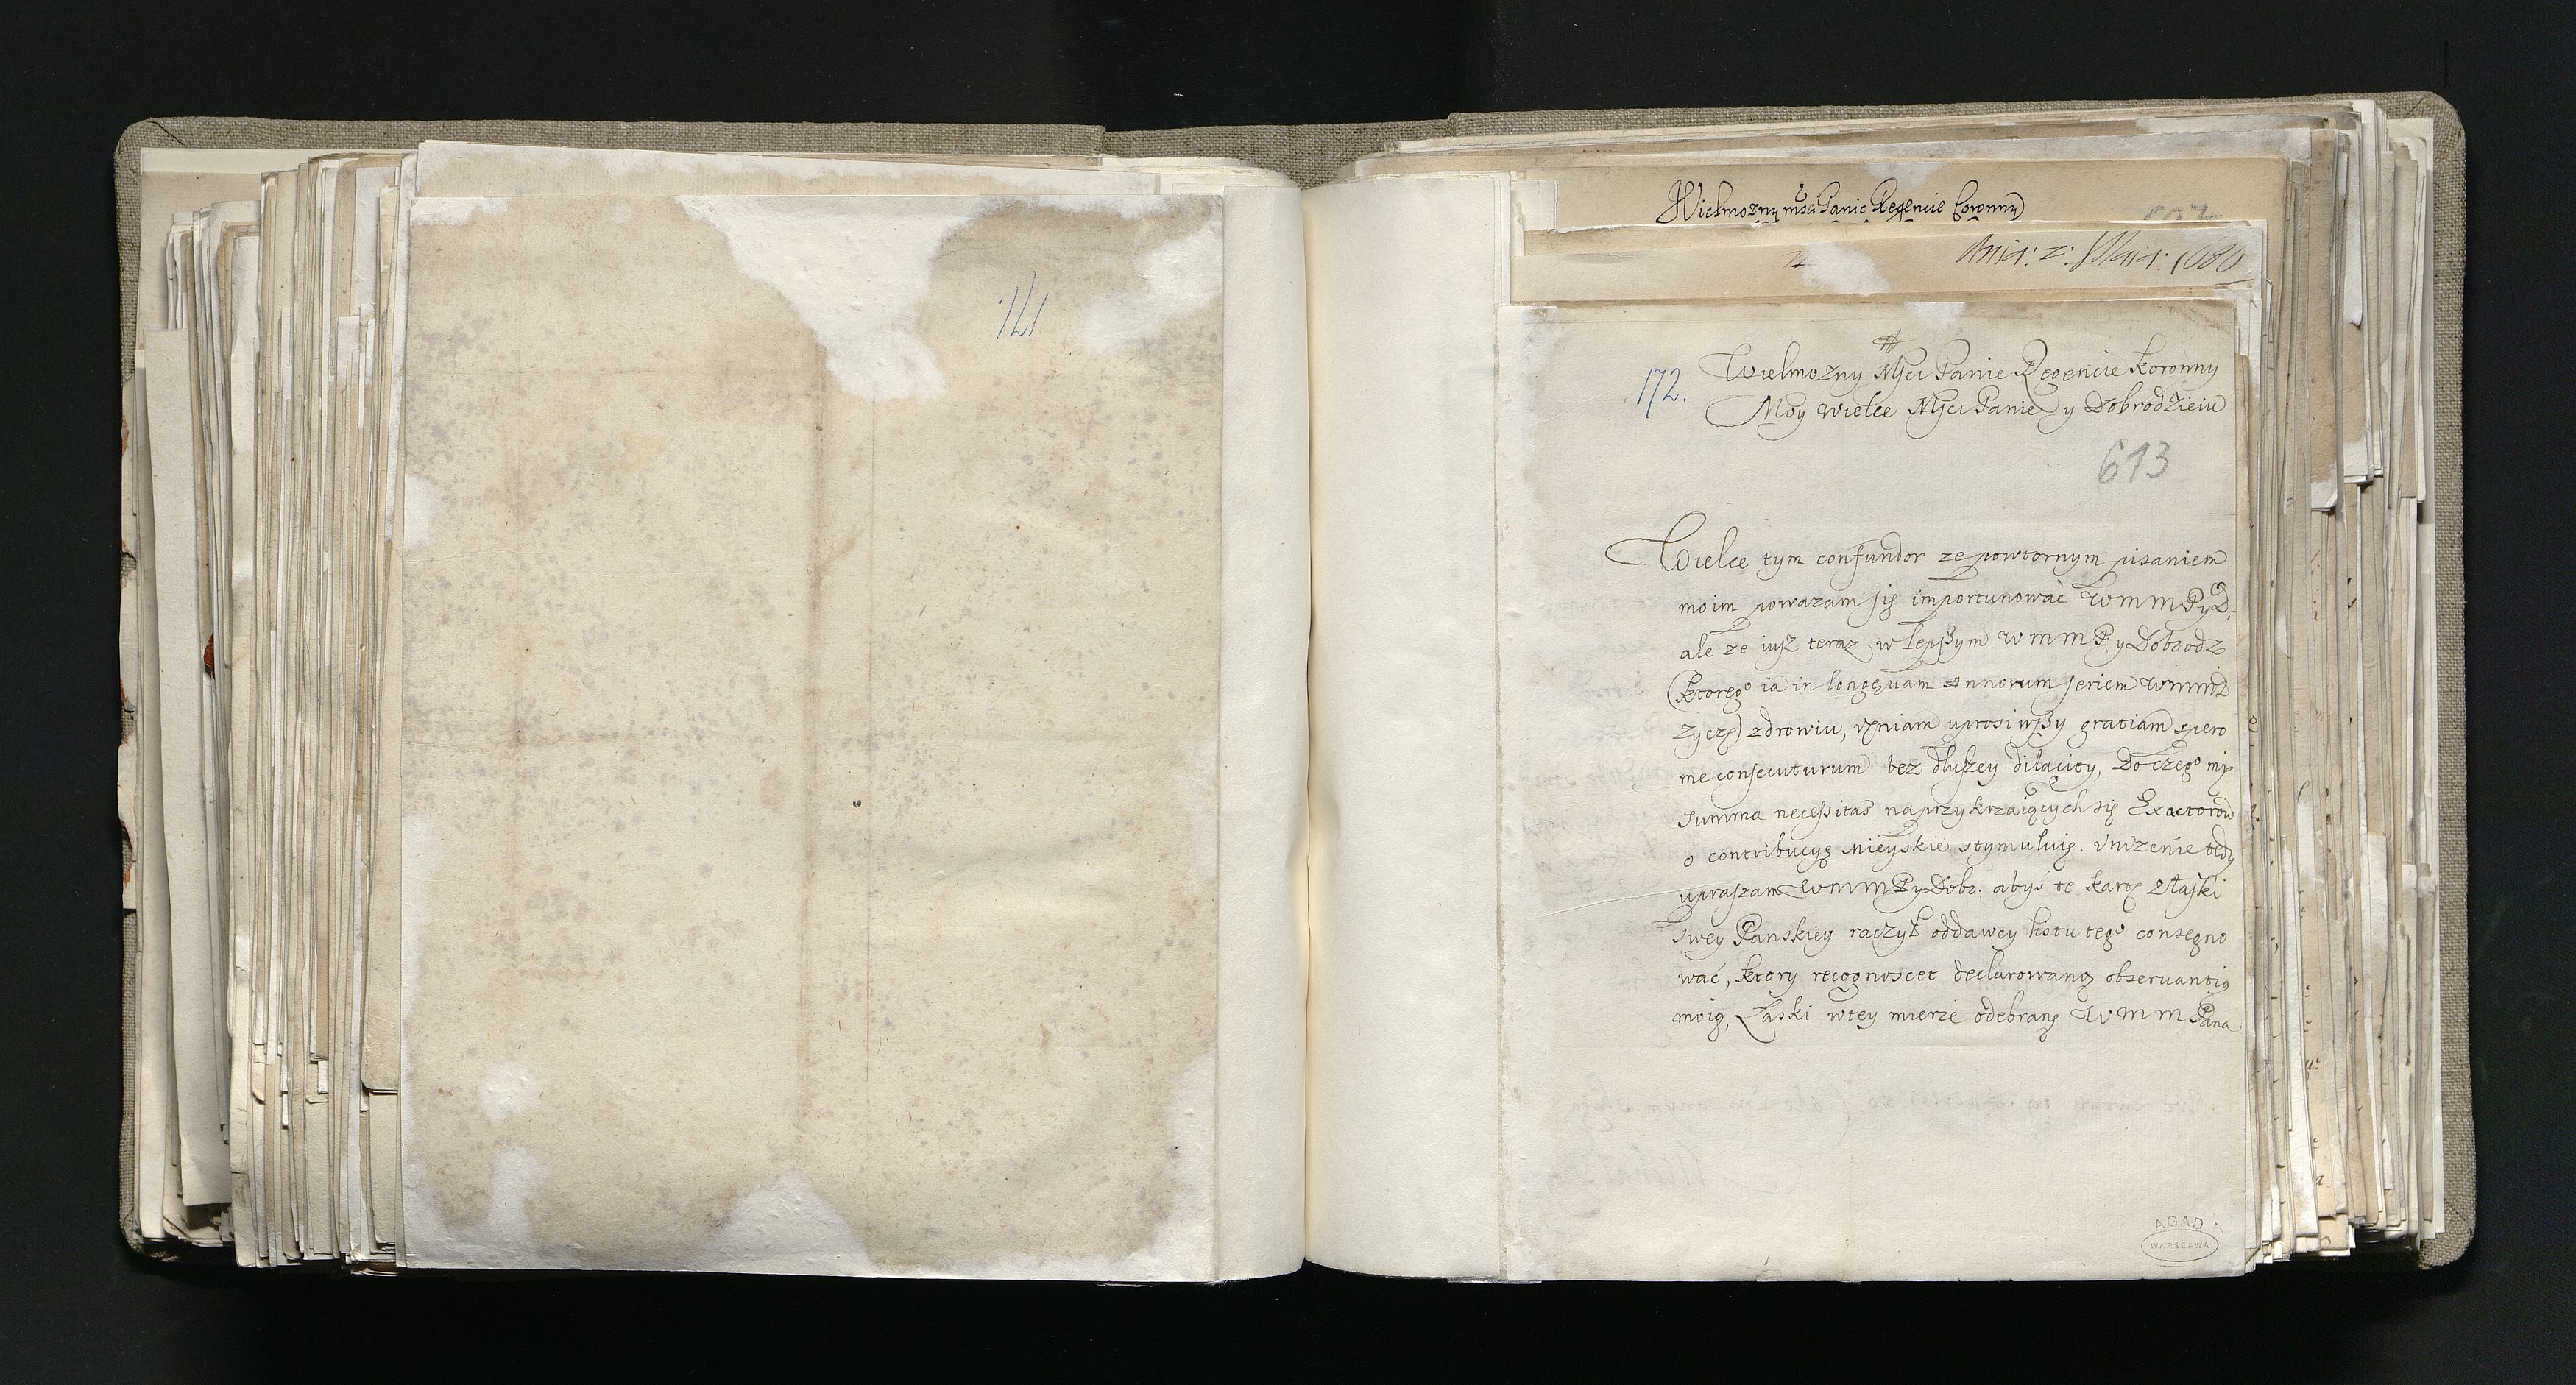 171.
Wielmozny msci Panie Regencie Koronny
172.
Wielmozny Mści Panie Regencie Koronny
Moy wielce Mści Panie y Dobrodzieiu
613
Wielce tym confundor ze powtornym pisaniem
moim powazam się importunować W m m P y D.
ale ze iusz teraz w lepszym w m m P y Dobrodz
(ktorego ia in longævam annorum seriem w m m P
zyczę) zdrowiu, veniam uprosiwszy gratiam spero
me consecuturum bez dłuszey dilaciey, Do czego mię
summa necessitas naprzykrzaiących się Exactorow
o contribucyę Mieyskie stymuluię. Vnizenie tedy
upraszam W m m P y Dobr: abyś te kartę z łaski
swey Panskiey raczył oddawcy listu tego consegno
wać, ktory recognoscet declarowaną obseruantią
moią, Łaski wtey mierze odebraną W m m Pana
AGAD
WARSZAWA